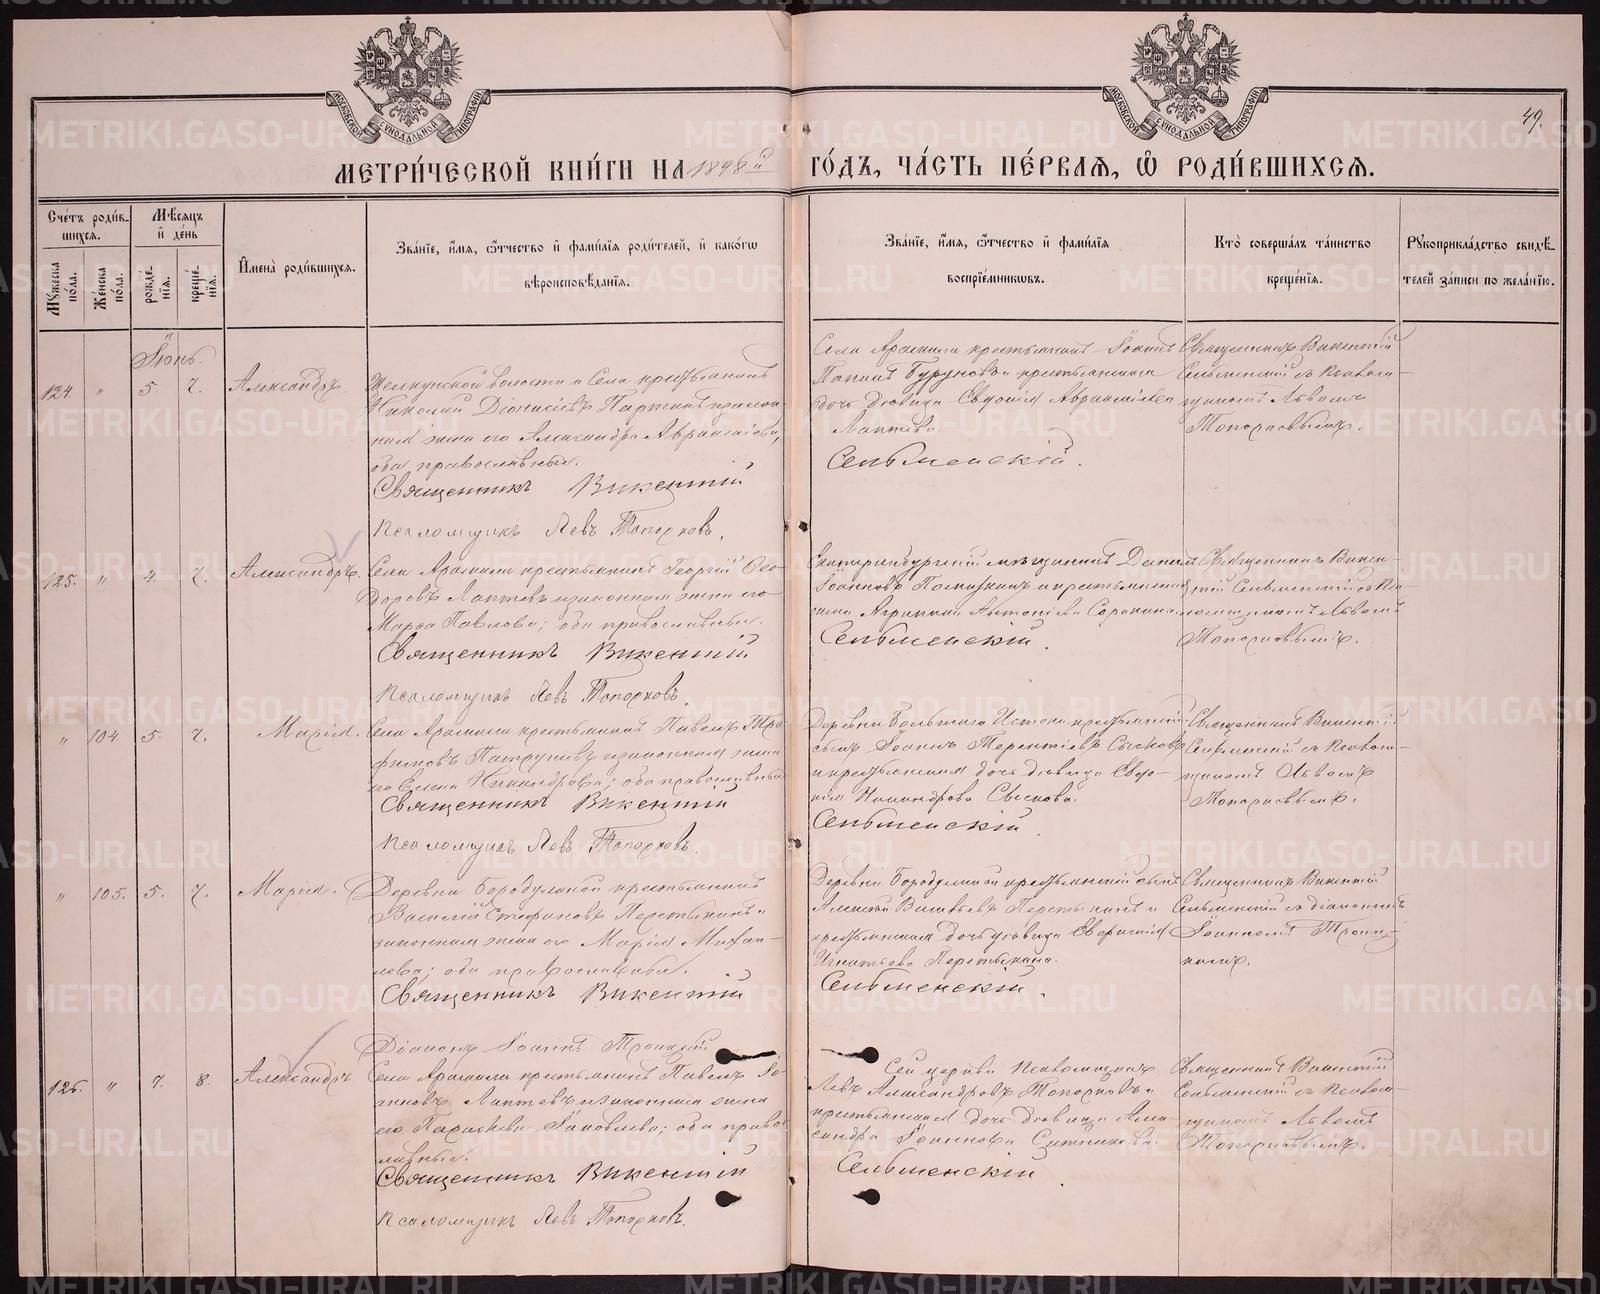 МОСКОВСКОЙ СѴНОДАЛЬНОЙ ТИПОГРАФІИ
МОСКОВСКОЙ СѴНОДАЛЬНОЙ ТИПОГРАФІИ
49.
МЕТРИ́ЧЕСКОЙ КНИ́ГИ НА 1898й ГО́ДЪ, ЧА́СТЬ ПЕ́РВАЯ, Ѡ РОДИ́ВШИХСЯ.
Сче́тъ роди́вшихся.
Му́жеска по́ла.
Же́нска по́ла.
Мѣ́сяцъ и де́нь
рожде́нія.
креще́нія.
Имена̀ роди́вшихся.
Зва́ніе, и́мя, ѻ́тчество и фами́лія роди́телей, и како́гѡ
вѣроисповѣ́данія.
Зва́ніе, и́мя, ѻ́тчество и фами́лія
воспріе́мникѡвъ.
Кто̀ соверша́лъ та́инство
креще́нія.
Рукоприкла́дство свидѣ́-
телей за́писи по жела́нію.
Іюнь.
124. " 5 7. Александръ
волости и Села крестьянинъ
Николай Діонисіевъ
жена его Александра Аврааміева,
оба православные.
Священникъ Викентій
Псаломщикъ Левъ Топорковъ.
Села Арамили крестьянинъ Іоаннъ
крестьянская
дочь дѣвица Евдокія Аврааміева
Лаптева.
Сельменскій.
Священникъ Викентій
Сельменскій съ Псалом-
щикомъ Львомъ
Топорковымъ.
125. " 4. 7. Александръ.
Села Арамили крестьянинъ Георгій Ѳео-
доровъ Лаптевъ и законная жена его
Марѳа Павлова; оба православные.
Священникъ Викентій
Псаломщикъ Левъ Топорковъ.
Екатеринбургскій мѣщанинъ
Іоанновъ и крестьянская
жена Агриппина Антоніева Сорокина.
Сельменскій.
Священникъ Викен-
тій Сельменскій съ Пса-
ломщикомъ Львомъ
Топорковымъ.
" 104. 5. 7. Марія.
Села Арамили крестьянинъ Павелъ Тро-
фимовъ Патрушевъ и законная жена
его Елена Никандрова; оба православные
Священникъ Викентій
Псаломщикъ Левъ Топорковъ.
Деревни Большаго Истока крестьянскій
сынъ Іоаннъ Терентіевъ Сысковъ
и крестьянская дочь дѣвица Евдо-
кія Никандрова Сыскова.
Сельменскій.
Священникъ Викентій
Сельменскій съ Псалом-
щикомъ Львомъ
Топорковымъ.
" 105. 5. 7. Марія.
Деревни Бородулиной крестьянинъ
Василій Стефановъ Перетыкинъ и
законная жена его Марія Михаи-
лова; оба православные.
Священникъ Викентій
Діаконъ Іоаннъ Троицкій
Деревни Бородулиной крестьянскій сынъ
Алексѣй Васильевъ Перетыкинъ и
крестьянская дочь дѣвица
Игнатьева Перетыкина.
Сельменскій.
Священникъ Викентій
Сельменскій съ діакономъ
Іоанномъ Троиц-
кимъ.
126. " 7. 8. Александръ
Села Арамили крестьянинъ Павелъ Іо-
анновъ Лаптевъ и законная жена
его Параскева Іаковлева; оба право-
славные.
Священникъ Викентій
Псаломщикъ Левъ Топорковъ.
Сей церкви Псаломщикъ
Левъ Александровъ Топорковъ и
крестьянская дочь дѣвица Алек-
сандра Іоаннова Ситникова.
Сельменскій
Священникъ Викентій
Сельменскій съ Псалом-
щикомъ Львомъ
Топорковымъ.
METRIKI.GASO-URAL.RU